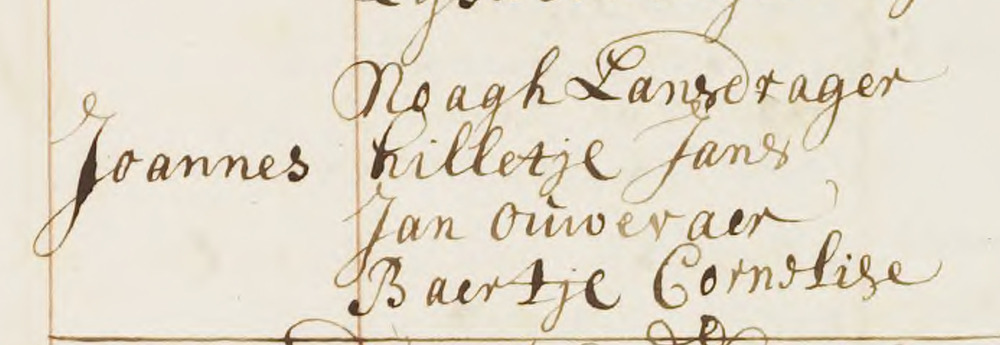 Noagh Lansdrager
Joannes hilletje Jans
Jan ouweraer
Baertje Cornelise